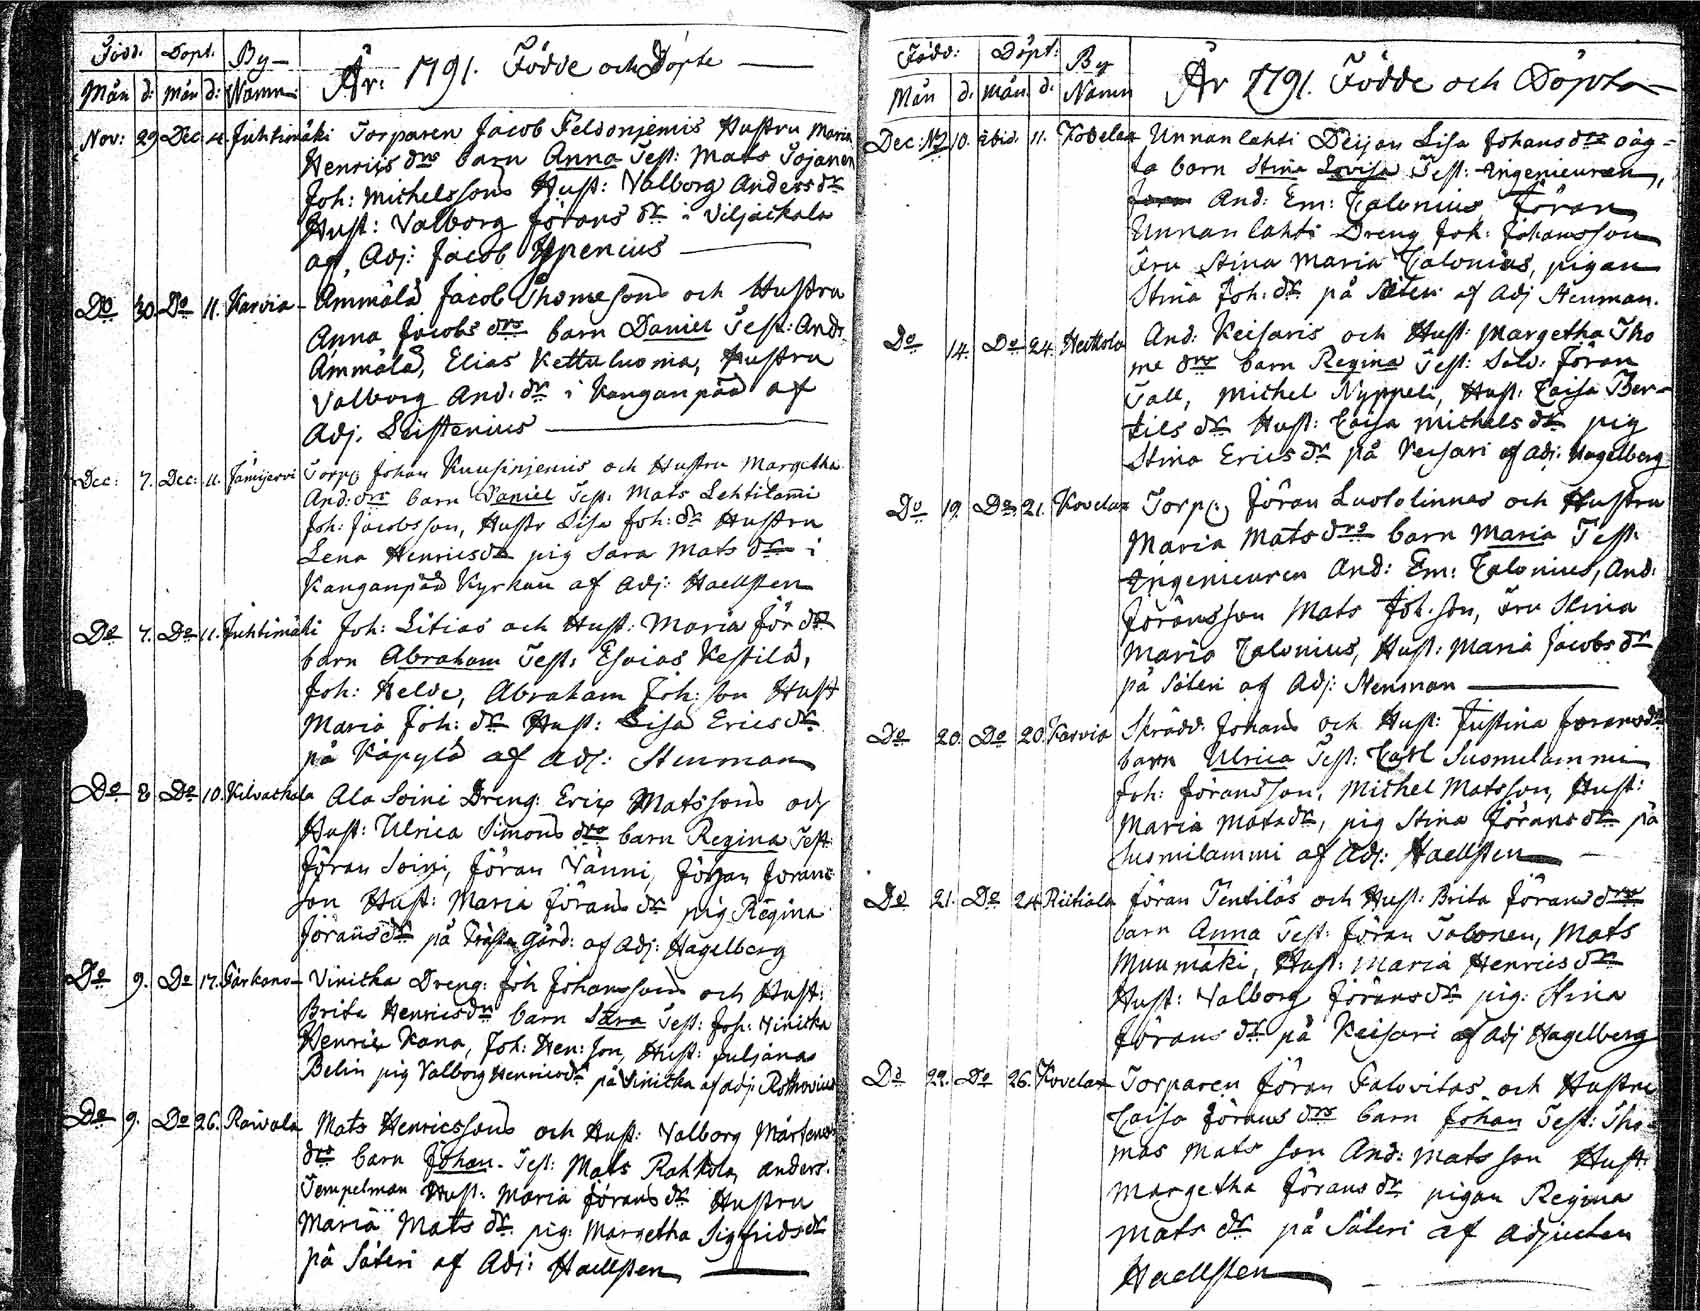 Född. Döpt. By-
Mån d: Mån d: Nämn:
År: 1791. Födde och Döpte
Nov: 29 Dec: 4. Juhtimäki Torparen Jacob Hustru Maria
Henrics drs barn Anna Test: Mats Pojanen
Joh: Michelssons Hust: Valborg Anders dr
Hust: Valborg Jörans dr i Viljackala
af, Adj: Jacob Ypenius
Do 30. Do 11. Karvia- Ämmälä Jacob Thomesons och Hustru
Anna Jacobs drs barn Daniel Test: And:
Ämmälä, Elias Kettuluoma, Hustru
Valborg And: dr i Kanganpää af
Adj. Leistenius
Dec: 7. Dec: 11. Jämijervi Torp: Johan Kuusinjemis och Hustru Margetha
And: drs barn Daniel Test: Mats Lehtilami
Joh: Jacobsson, Hustr Lisa Joh: dr Hustru
Lena Henricsdr pig Sara Mats dr i
Kanganpää Kyrkan af Adj: Haellsten
Do 7. Do 11. Juhtimäki Joh: Litias och Hust: Maria Jör dr
barn Abraham Test: Esaias Kestilä,
Joh: Helve, Abraham Joh: son Hust
Maria Joh: dr Hust: Lisa Erics dr
på Käpylä af Adj: Stenman
Do 8. Do 10. Kilvackala Ala Soini Dreng: Eric Matssons och
Hust: Ulrica Simons drs barn Regina Test:
Jöran Soini, Jöran Vänni, Jöran Jörans
son Hust: Maria Jörans dr pig Regina
Jöransdr på Präste Gård: af Adj: Hagelberg
Do 9. Do 17. Parkano- Vinitka Dreng: Joh Johanssons och Hust:
Brita Henricsdr barn Sara Test: Joh: Vinitka
Henric Kana, Joh: Hen: son, Hust: Juljana
Belin pig Valborg Henricsdr på Vinitka af Adj Rothovius
Do 9. Do 26. Raivala Mats Henricssons och Hust: Valborg Mårtens
drs barn Johan. Test: Mats Rahkola, anders.
Tempelman Hust: Maria Jörans dr Hustru
Maria Mats dr. pig: Margetha Sigfrids dr
på Säteri af Adj: Haellsten
Född: Döpt: By
Mån d. Mån d. Nämn
År 1791. Födde och Döpta
Dec: 10. ibid. 11. Kovelax Unnanlahti Deijan Lisa Johans drs oäg-
ta barn Stina Lovisa Test: Ingenieuren,
And: Em: Calonius Jöran
Unnanlahti Dreng Joh: Johansson
Fru Stina Maria Calonius, pigan
Stina Joh: dr. på Säteri af Adj Stenman.
Do 14. Do 24. Heittola And: Keisaris och Hust: Margetha Tho
me drs barn Regina Test: Sold: Jöran
Tall, Michel Nyppeli, Hust: Caisa Ber-
tils dr Hust: Caisa Michels dr pig
Stina Erics dr på Keisari af Adj: Hagelberg
Do 19. Do 21. Kovelax Torp: Jöran Luotolinnas och Hustru
Maria Mats drs barn Maria Test.
Ingenieuren And: Em: Calonius, And:
Jöransson Mats Joh. son, Fru Stina
Maria Calonius, Hust: Maria Jacobs dr
på Säteri af Adj: Stenman
Do 20. Do 20. Karvia Skrädd. Johans och Hust: Justina Joransdr
barn Ulrica Test: Carl Suomilammi
Joh: Jöransson, Michel Matsson, Hust:
Maria Matsdr, pig Stina Jörans dr på
Suomilammi af Adj: Haellsten
Do 21. Do 24 Riitiala Jöran Pentiläs och Hust: Brita Jörans drs
barn Anna Test: Jöran Salonen, Mats
Muumäki, Hust: Maria Henrics dr
Hust: Valborg Jöransdr pig: Stina
Jörans dr på Keisari af Adj Hagelberg
Do 22. Do 26. Kovelax Torparen Jöran Palovitas och Hustru
Caisa Jörans drs barn Johan Test: Tho-
mas Matsson And: Matsson Hust:
Margetha Jörans dr pigan Regina
Mats dr på Säteri af Adjuncten
Haellsten